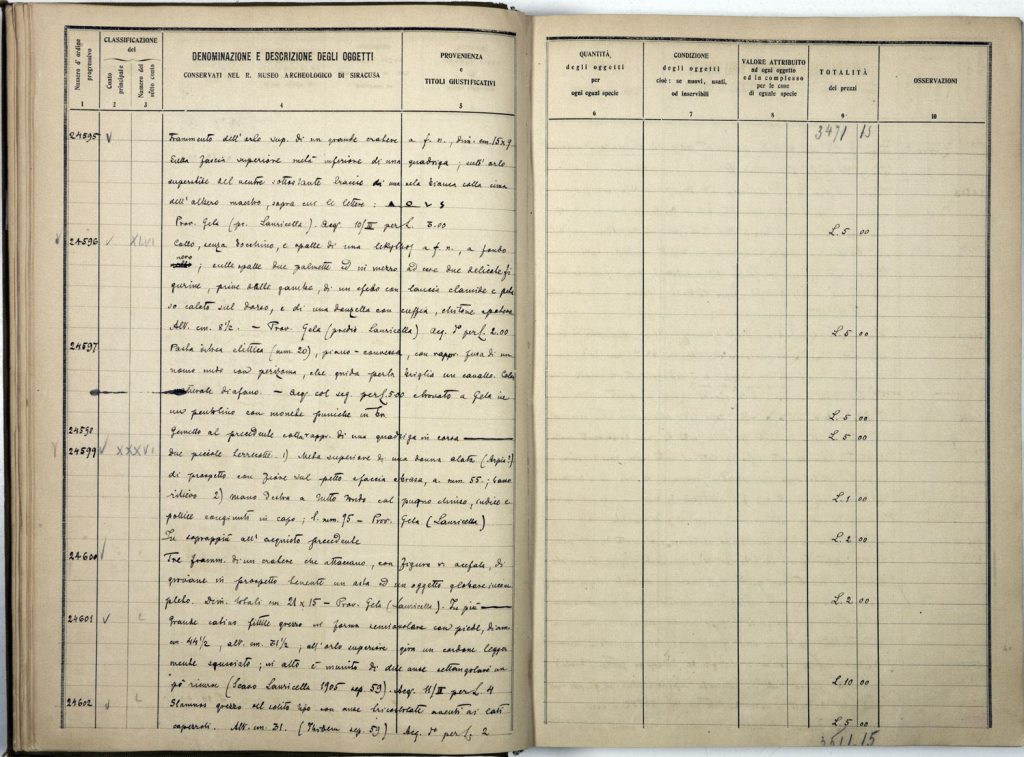 Numero d'ordine progressivo
CLASSIFICAZIONE
del
Conto principale
Numero del sotto conto
DENOMINAZIONE E DESCRIZIONE DEGLI OGGETTI
CONSERVATI NEL R. MUSEO ARCHEOLOGICO DI SIRACUSA
PROVENIENZA
e
TITOLI GIUSTIFICATIVI
1 2 3 4 5
QUANTITÀ
degli oggetti
per
ogni egual specie
CONDIZIONE
degli oggetti
cioè: se nuovi, usati,
od inservibili
VALORE ATTRIBUITO
ad ogni oggetto
od in complesso
per le cose
di eguale specie
TOTALITÀ
dei prezzi
OSSERVAZIONI
6 7 8 9 10
3471 15
24595 Frammento dell'orlo sup. di un grande cratere a f. n., dim. cm. 15x9
Sulla fascia superiore metà inferiore di una quadriga; sull'orlo
superstite del ventre sottostante braccio di una vela bianca colla cima
dell'albero maestro, sopra cui le lettere:
Prov. Gela (pr. Lauricella). Acq. 10/II per L. 3.00
L. 5 00
24596 XLVI Collo, senza bocchino, e spalle di una lekythos a f. n., a fondo
nero; sulle spalle due palmette ed in mezzo ad esse due delicate fi
gurine, prive delle gambe, di un efebo con lancia clamide e peta
so calato sul dorso, e di una donzella con cuffia, chitone
Alt. cm. 8½. - Prov. Gela (predio Lauricella) Acq. do per L. 2.00
L. 5 00
24597 Pasta vitrea elittica (mm. 20), piano-convessa, con rappr. fusa di un
uomo nudo con perizoma, che guida per la briglia un cavallo.
diafano. - Acq. col seg. per L. 5.00 e trovato a Gela in
un pentolino con monete puniche in br.
L. 5 00
24598 Gemello al precedente colla rappr. di una quadriga in corsa
L. 5 00
24599 XXXVI Due piccole terrecotte. 1) Metà superiore di una donna alata (Arpia?)
di prospetto con fiore sul petto e faccia abrasa, a. mm. 55;
rilievo 2) mano destra a tutto tondo col pugno chiuso, indice e
L. 1 00
pollice congiunti in capo; l. mm. 95 - Prov. Gela (Lauricella)
In soprappiù all'acquisto precedente
L. 2 00
24600 Tre framm. di un cratere che attaccano, con figura vi acefala, di
giovane in prospetto tenente un asta ed un oggetto globare incom
pleto. Dim. totali cm 21 x 15 - Prov. Gela (Lauricella). In più
L. 2 00
24601 L Grande catino fittile grezzo in forma semiovolare con piede, diam
cm. 44½, alt. cm. 31½; all'orlo superiore gira un cordone legger
mente squisito; in alto è munito di due anse rettangolari un
pò ricurve (Scavo Lauricella 1905 sep. 53). Acq. 11/II per L. 4
L. 10 00
24602 L Stamnos grezzo del solito tipo con anse tricostolate aventi ai lati
caperroli. Alt. cm. 31. (Ibidem sep. 53) Acq. do per L. 2
L. 5 00
3511.15